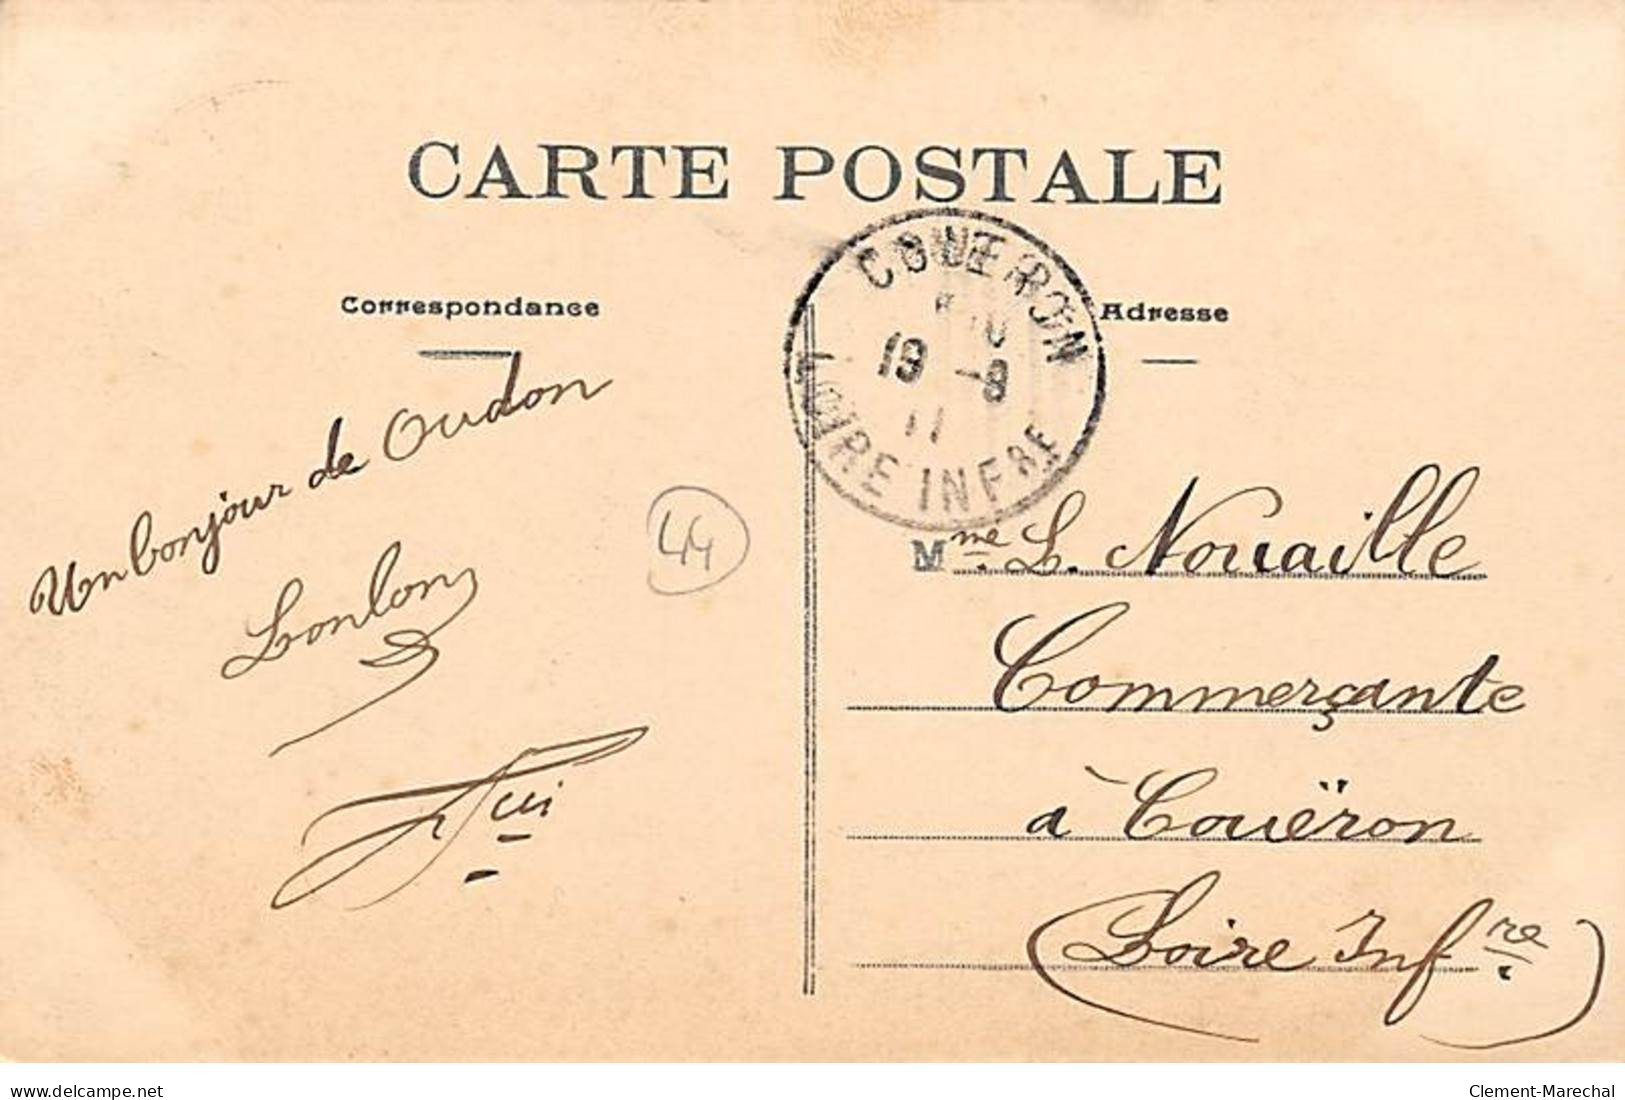 CARTE POSTALE
Correspondance
Adresse
COUERON
19 -8
11
LOIRE INFRE
Un bonjour de Oudon
Lonlon
44
Mme L. Nouaille
Commerçante
à Couëron
(Loire Infre)
delcampe.net
Clement-Marechal